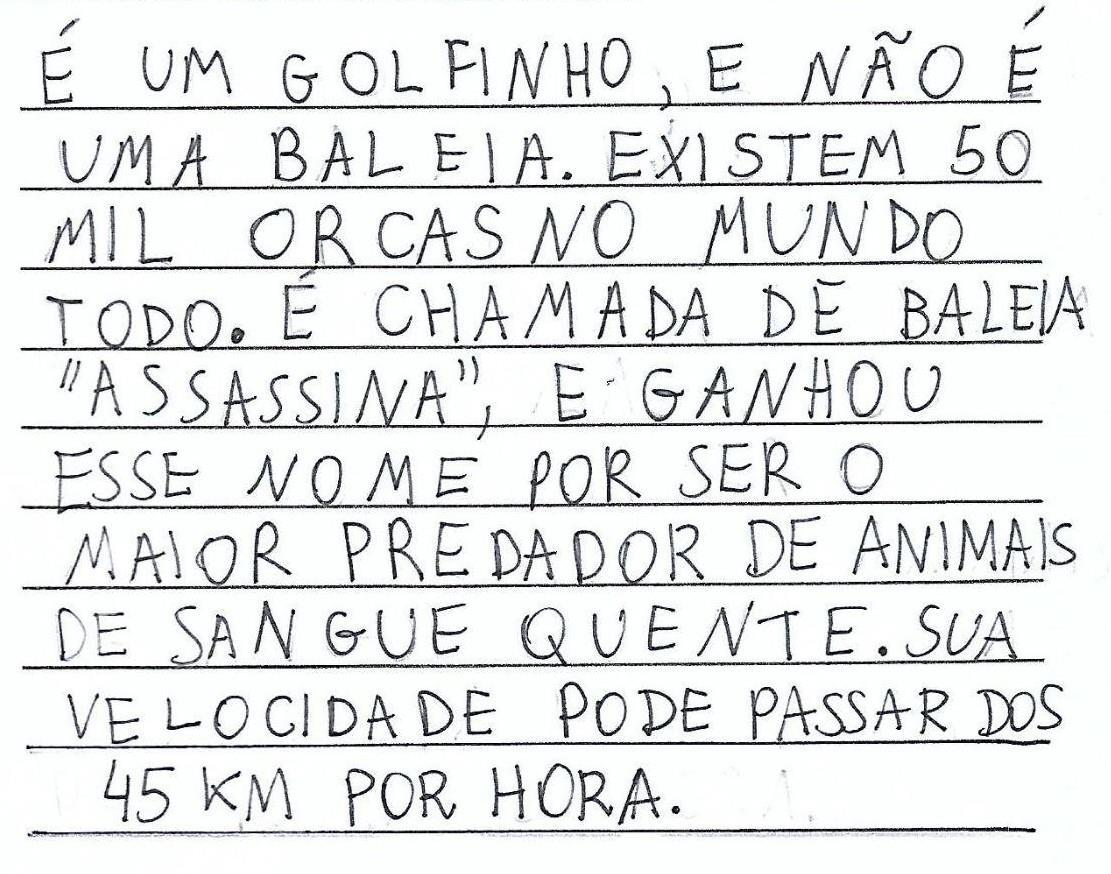 É UM GOLFINHO, E NÃO É
UMA BALEIA. EXISTEM 50
MIL ORCAS NO MUNDO
TODO. É CHAMADA DE BALEIA
"ASSASSINA", E GANHOU
ESSE NOME POR SER O
MAIOR PREDADOR DE ANIMAIS
DE SANGUE QUENTE. SUA
VELOCIDADE PODE PASSAR DOS
45 KM POR HORA.